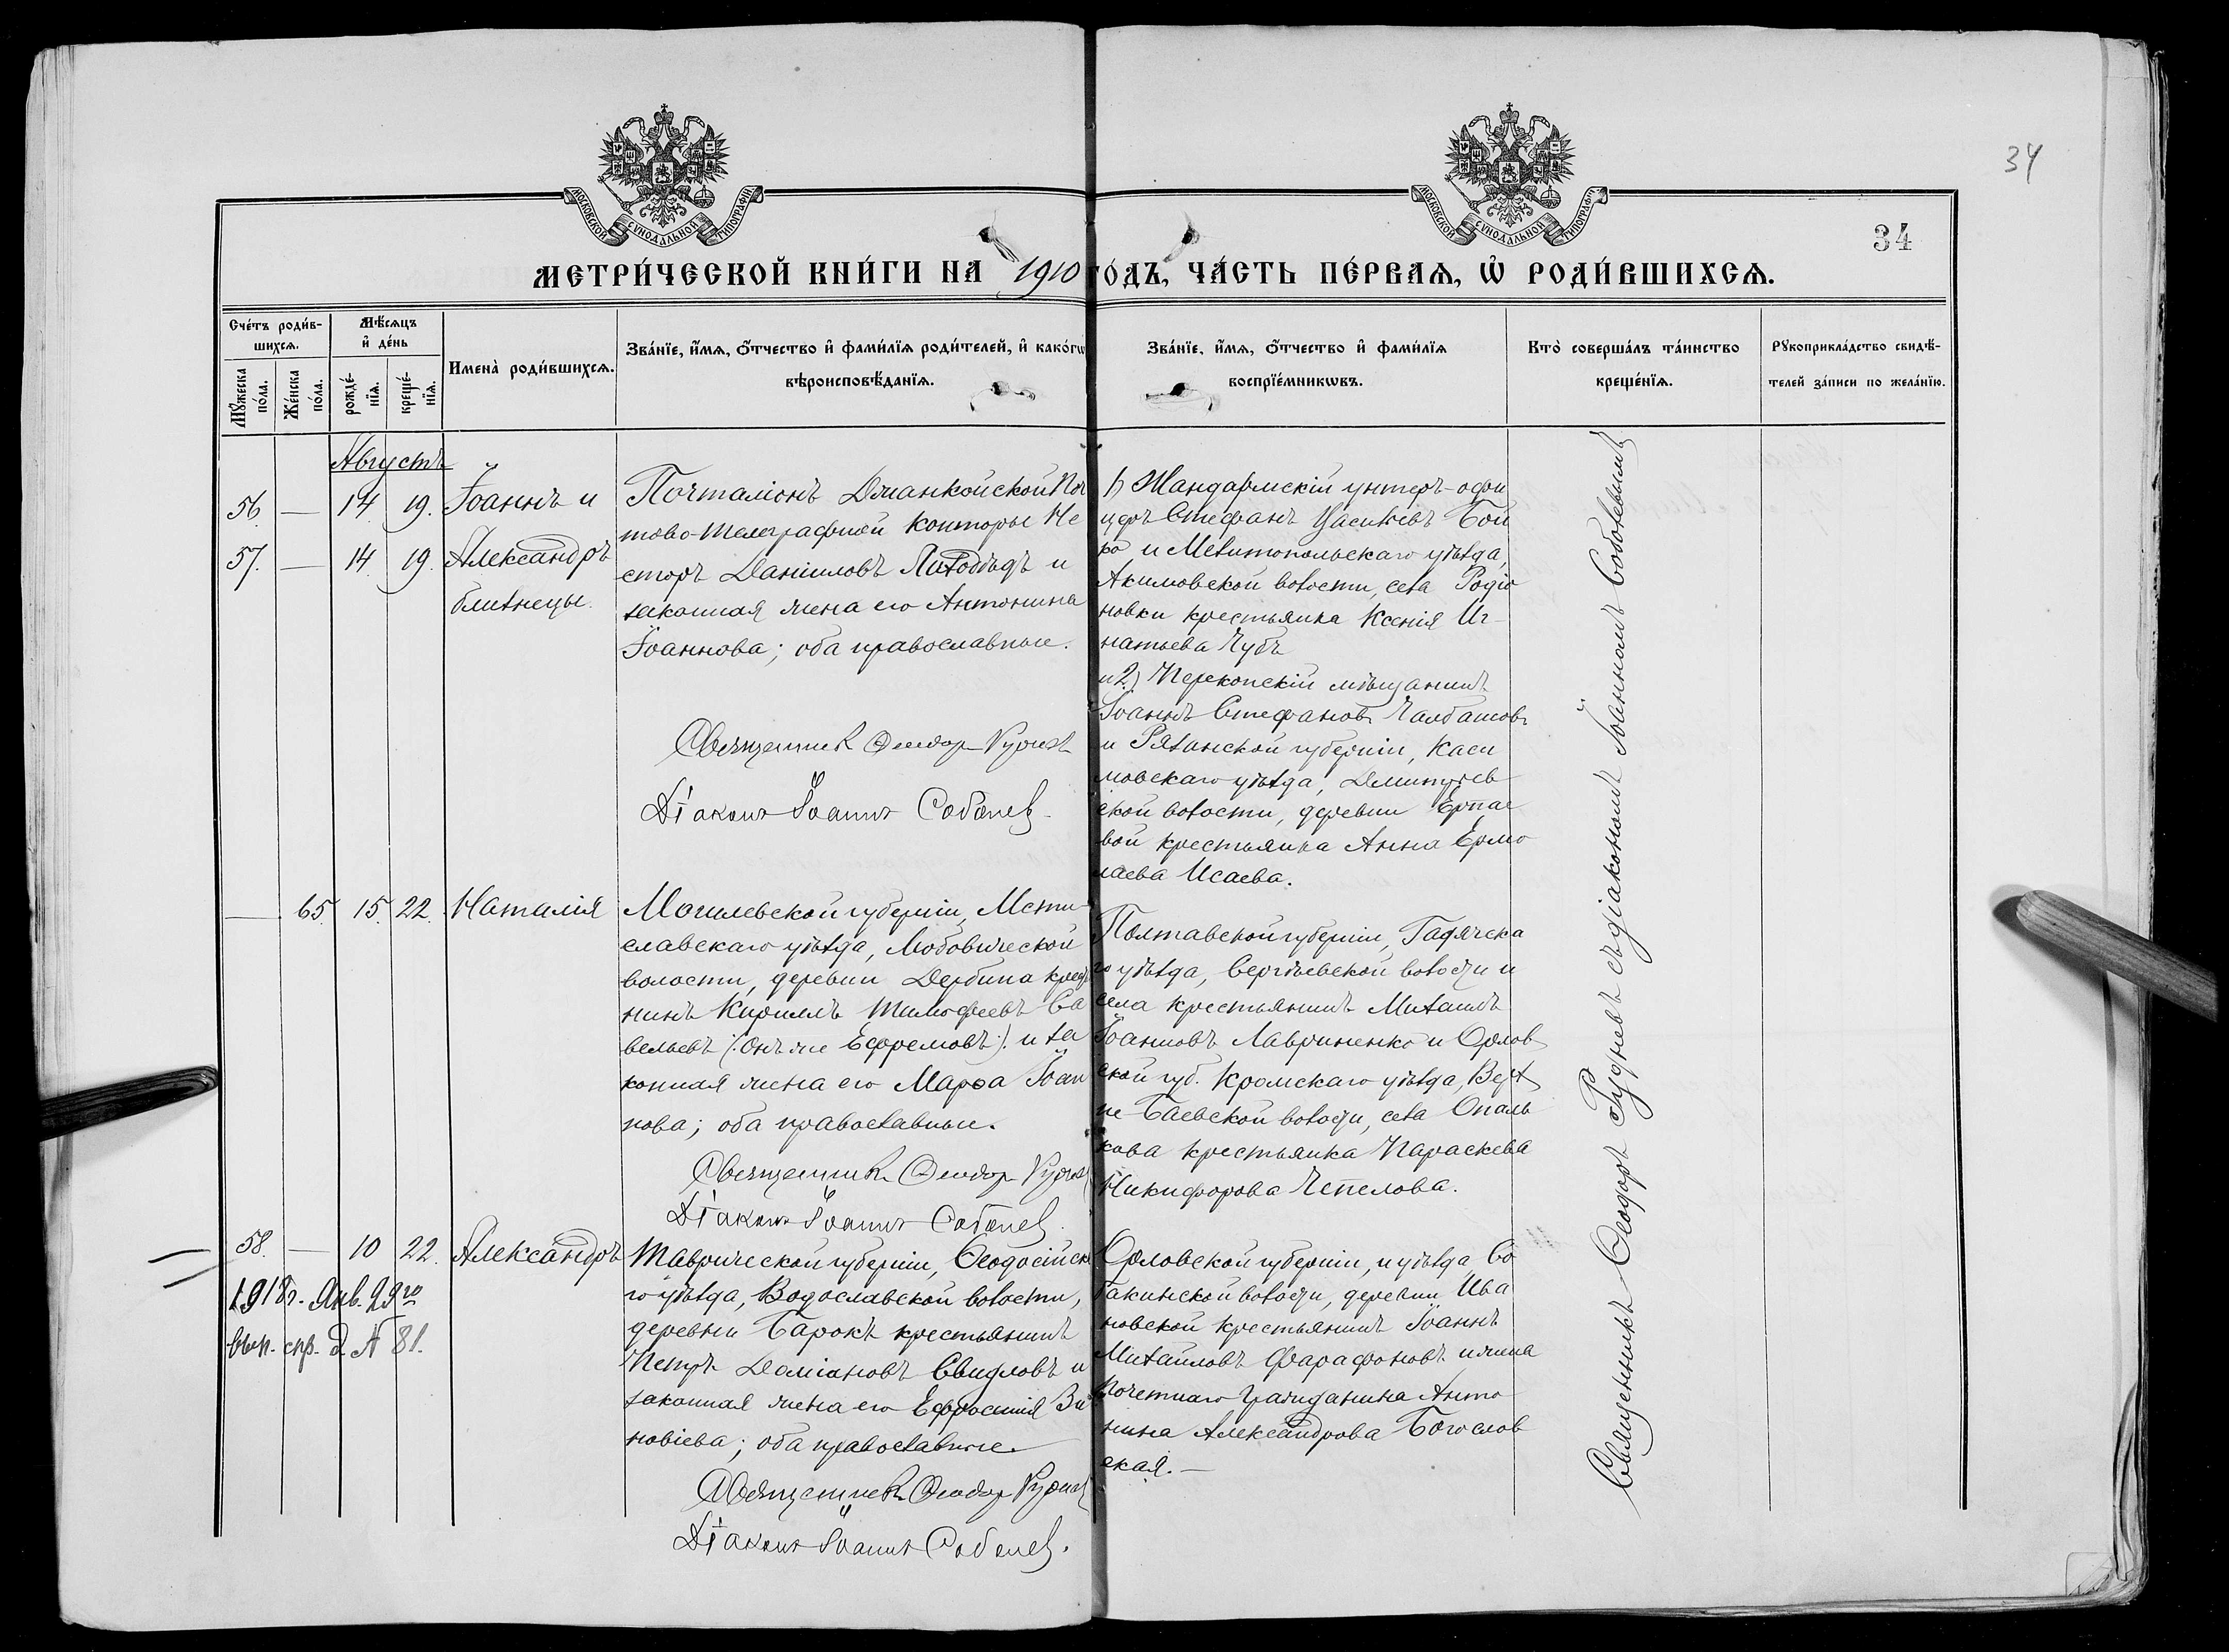 34
МОСКОВСКОЙ СУНОДАЛЬНОЙ ТИПОГРАФІИ
МОСКОВСКОЙ СУНОДАЛЬНОЙ ТИПОГРАФІИ
34
МЕТРИ́ЧЕСКОЙ КНИ́ГИ НА 1910 ГО́ДЪ, ЧА́СТЬ ПЕ́РВАѦ, Ѡ РОДИ́ВШИХСѦ.
Сче́тъ роди́в-
шихсѧ.
Мꙋ́жеска по́ла.
Же́нска по́ла.
Мѣ́сѧцъ и де́нь
рожде́-
нїѧ.
креще́-
нїѧ.
Имена̀ роди́вшихсѧ.
Зва́нїе, и́мѧ, ѻ́тчество и фами́лїѧ роди́телей, и како́гѡ
вѣроисповѣ́данїѧ.
Зва́нїе, и́мѧ, ѻ́тчество и фами́лїѧ
воспрїе́мникѡвъ.
Кто̀ соверша́лъ та́инство
креще́нїѧ.
Рꙋкоприкла́дство свидѣ́-
телей за́писи по жела́нїю.
Августъ
56. — 14 19. Іоаннъ и
57. — 14 19. Александръ
близнецы.
Почталіонъ Джанкойской Поч
тово-телеграфной конторы Не
сторъ Даніиловъ и
законная жена его Антонина
Іоаннова; оба православные.
Священникъ Ѳеодоръ Руфневъ
Діаконъ Іоаннъ Соболевъ
1) Жандармскій унтеръ-офи
церъ Стефанъ Бой
ко и Мелитопольскаго уѣзда,
Акимовской волости, села Родіо
новки крестьянка Ксенія Иг-
натьева Чубъ
и 2) Перекопскій мѣщанинъ
Іоаннъ Стефановъ Чалбашовъ
и Рязанской губерніи, Каси
мовскаго уѣзда, Дмитріев
ской волости, деревни Ерпае
вой крестьянка Анна Ермо
лаева Исаева.
— 65 15. 22. Наталія
Могилевской губерніи, Мсти
славскаго уѣзда, Любовической
волости, деревни Дербина крестья
нинъ Кириллъ Тимофеевъ Са
вельевъ (: Онъ же Ефремовъ:) и за
конная жена его Марѳа Іоан
нова; оба православные.
Священникъ Ѳеодоръ Руфневъ
Діаконъ Іоаннъ Соболевъ.
Полтавской губерніи, Гадячска
го уѣзда, Сергіевской волости и
села крестьянинъ Михаилъ
Іоанновъ Лавриненко и Орлов
ской губ. Кромскаго уѣзда, Верх
не-Баевской волости, села Опаль
кова крестьянка Параскева
Никифорова Чепелова.
58. — 10 22. Александръ
1918 г. Янв. 29го
вып. спр. д. № 81.
Таврической губерніи, Ѳеодосійска
го уѣзда, Водославской волости,
деревни Барокъ крестьянинъ
Петръ Даміановъ Свидловъ и
законная жена его Ефросинія Зи
новіева; оба православные.
Священникъ Ѳеодоръ Руфневъ
Діаконъ Іоаннъ Соболевъ.
Орловской губерніи, и уѣзда Со
бакинской волости, деревни Ива
новской крестьянинъ Іоаннъ
Михаиловъ Фарафоновъ и жена
почетнаго гражданина Анто
нина Александрова Богослов
ская. —
Священникъ Ѳеодоръ Руфневъ съ діакономъ Іоанномъ Соболевымъ